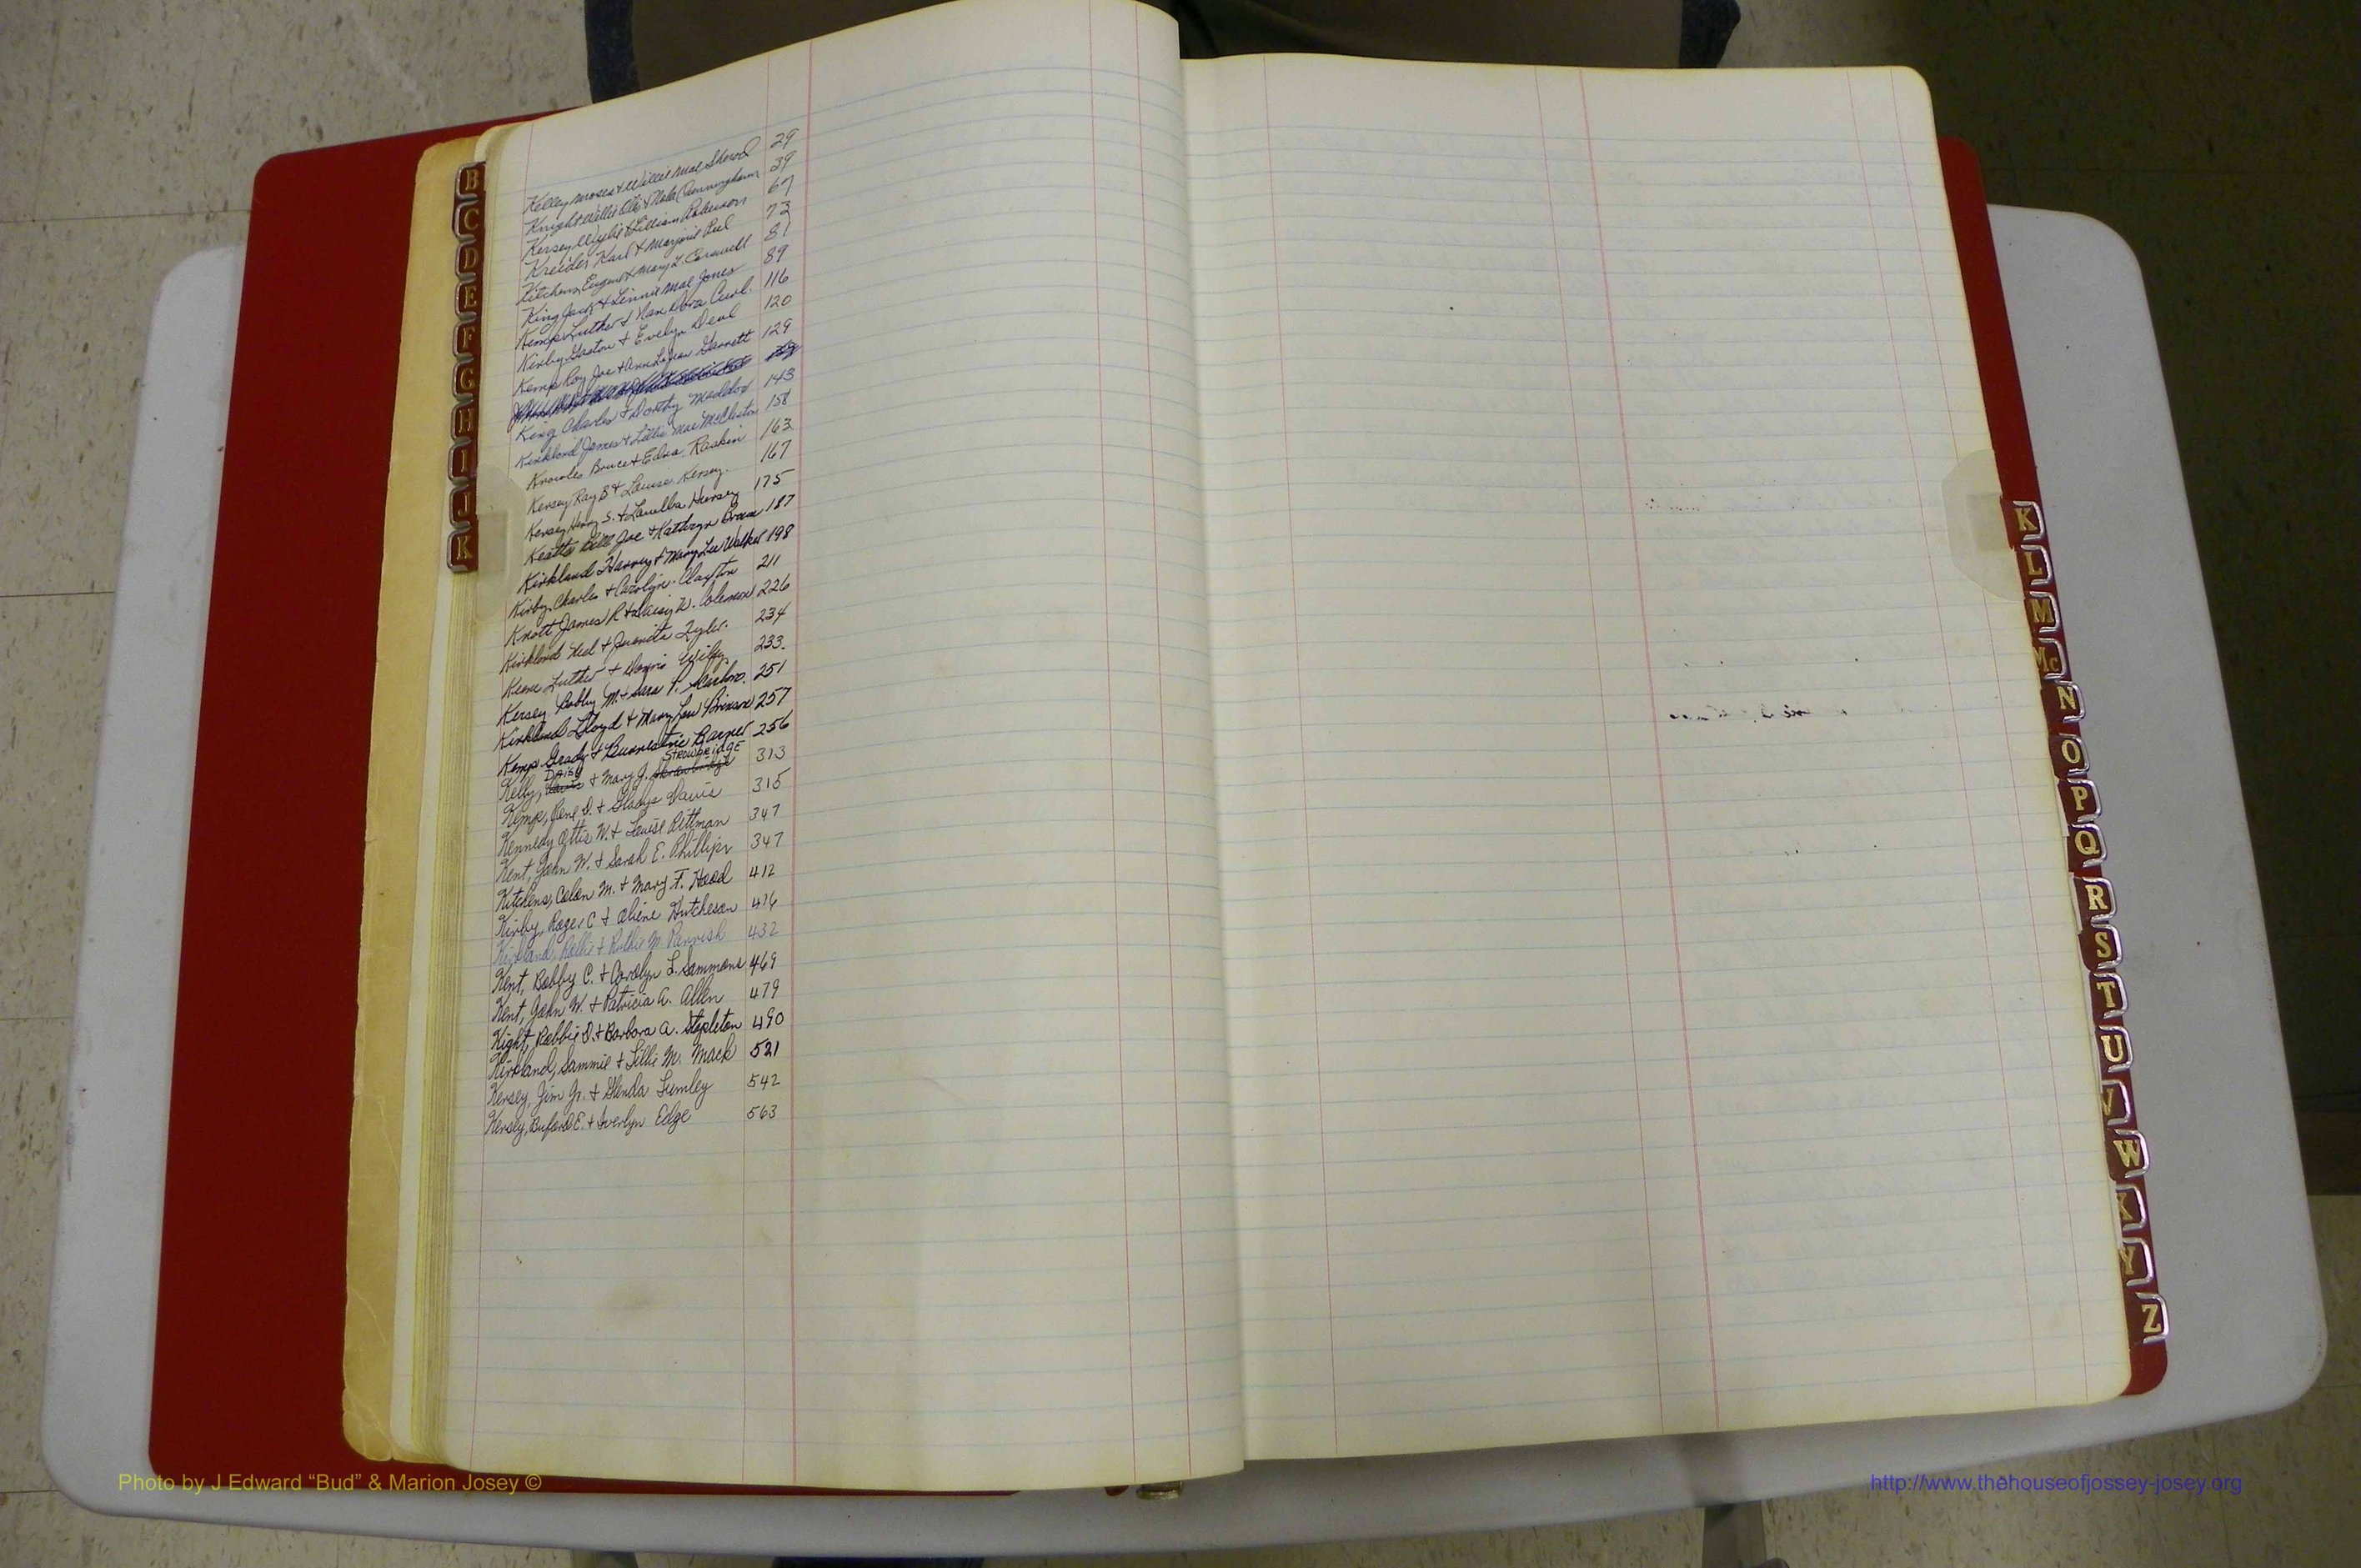 B
C
D
E
F
G
H
I
J
K
Kelley Moses & Willie Mae Sherod 29
Knight Willie & Nola Cunningham 39
Kersey & Lillian Roberson 67
Kreider Karl & Marjorie Peel 73
Kitchens, Eugene & Mary L. Carswell 81
King Jack & Linnie Mae Jones 89
Kemp Luther & Dora Curl. 116
Kirby Gaston & Evelyn Deal 120
Kemp Roy Joe & Ann Garrett 129
King Charles & Dorothy Maddox 143
Kirkland James & Lillie Mae 158
Knowles Bruce & Edna Raskin 163
Kersey, Ray B & Louise Kersey. 167
Kersey Henry S. & Louella Hursey 175
Joe & Kathryn 187
Kirkland Harvey & Mary Lee Walker 198
Kirby, Charles & Carolyn Clayton 211
Knott James R & Daisy W. Coleman 226
Kirkland Ned & Juanita Tyler. 234
Luther & 233.
Kersey Bobby M. & Sara F. 251
Kirkland Lloyd & Mary Lou Brinson 257
Kemp Grady & Burnestine Barnes 256
STROWBRIDGE
DAISY
Kelly, & Mary J. 313
Kemp, Rene D. & Gladys Davis 315
Kennedy Ottis W. & Louise Pittman 347
Kent, John W. & Sarah E. Phillips 347
Kitchens, Colon M. & Mary F. Hood 412
Kirby, Roger C & Oliene Hutcheson 416
Kirkland, Rollie & Ruthie M. Parrish 432
Kent, Bobby C. & Carolyn L. Sammons 469
Kent, John W. & Patricia A. Allen 479
Kight, Robbie D. & Barbara A. Stapleton 490
Kirkland, Sammie & Lillie M. Mack 521
Kersey, Jim Jr. & Glenda Lumley 542
Kersey, Buford E. & Iverlyn Edge 563
K
L
M
Mc
N
O
P
Q
R
S
T
U
V
W
X
Y
Z
Photo by J Edward “Bud” & Marion Josey ©
http://www.thehouseofjossey-josey.org